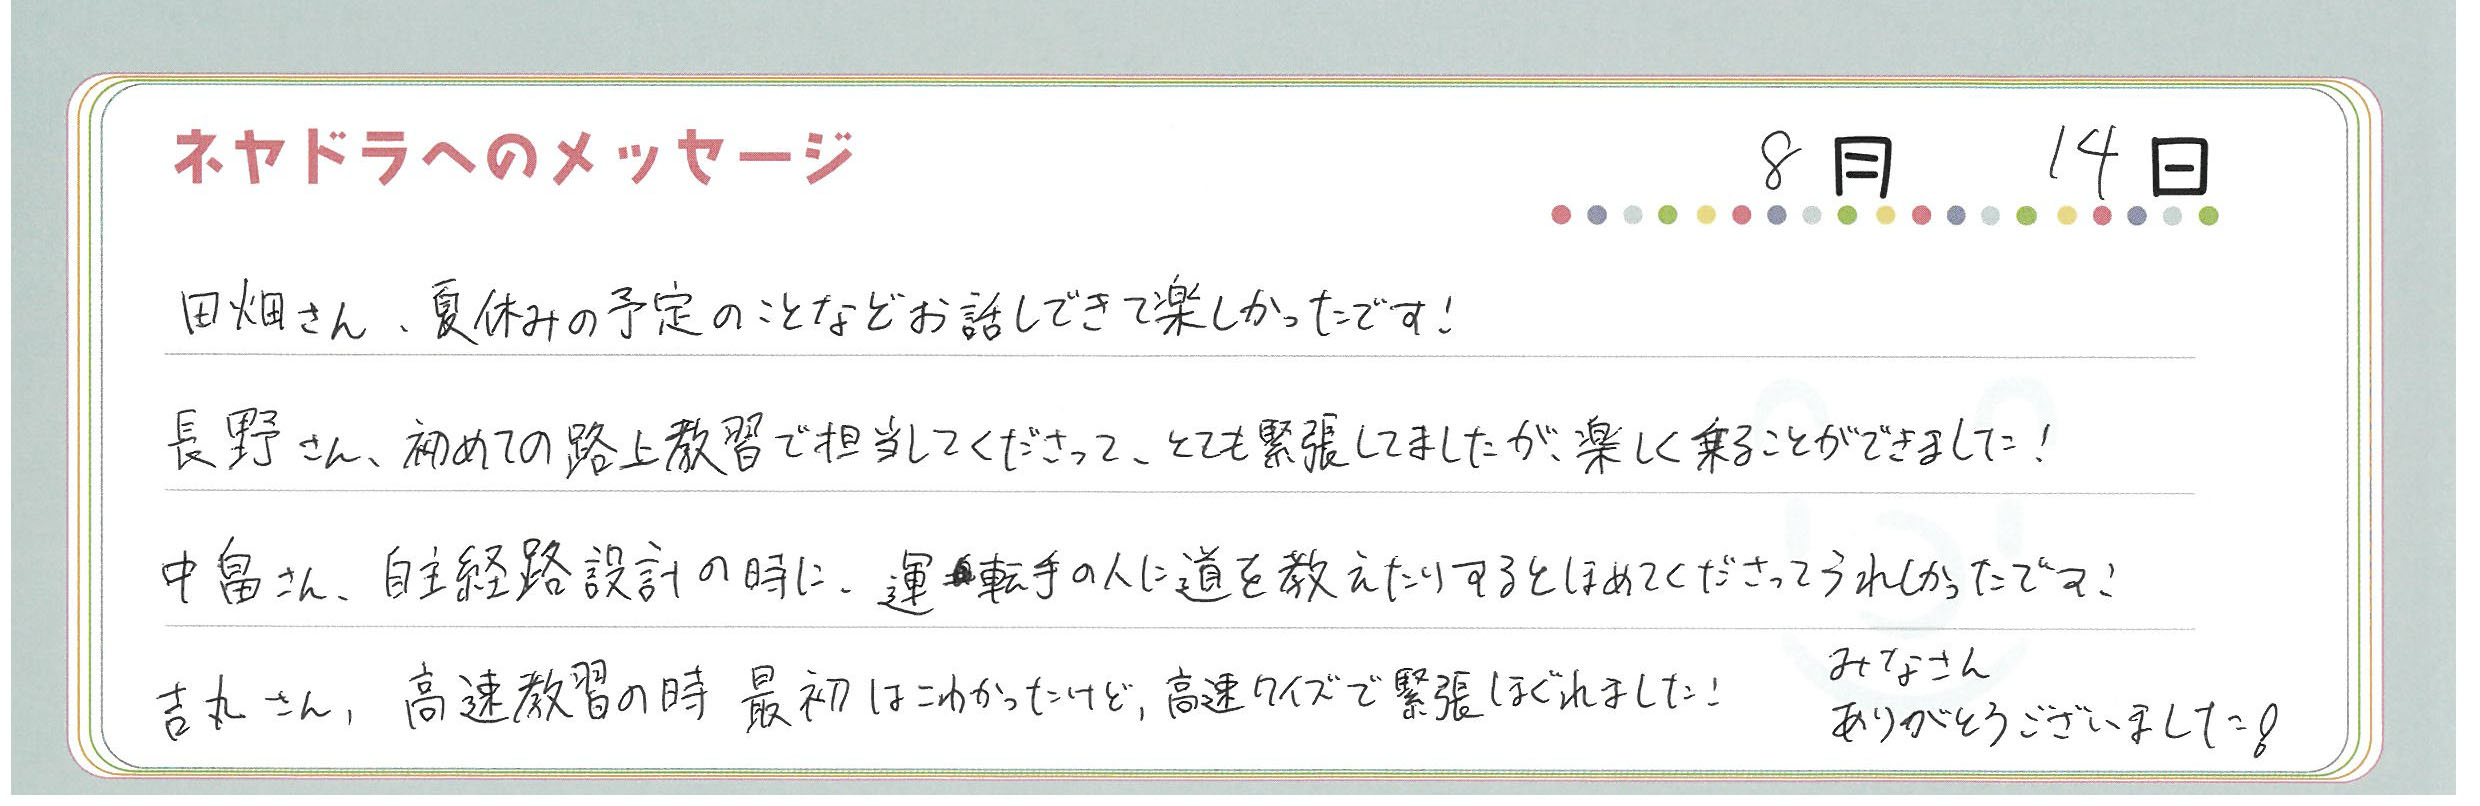 ネヤドラへのメッセージ
8月 14日
田畑さん、夏休みの予定のことなどお話しできて楽しかったです!
長野さん、初めての路上教習で担当してくださって、とても緊張してましたが、楽しく乗ることができました!
中畠さん、自主経路設計の時に、運転手の人に道を教えたりするとほめてくださってうれしかったです!
吉丸さん, 高速教習の時 最初はこわかったけど, 高速クイズで緊張ほぐれました!
みなさん
ありがとうございました!